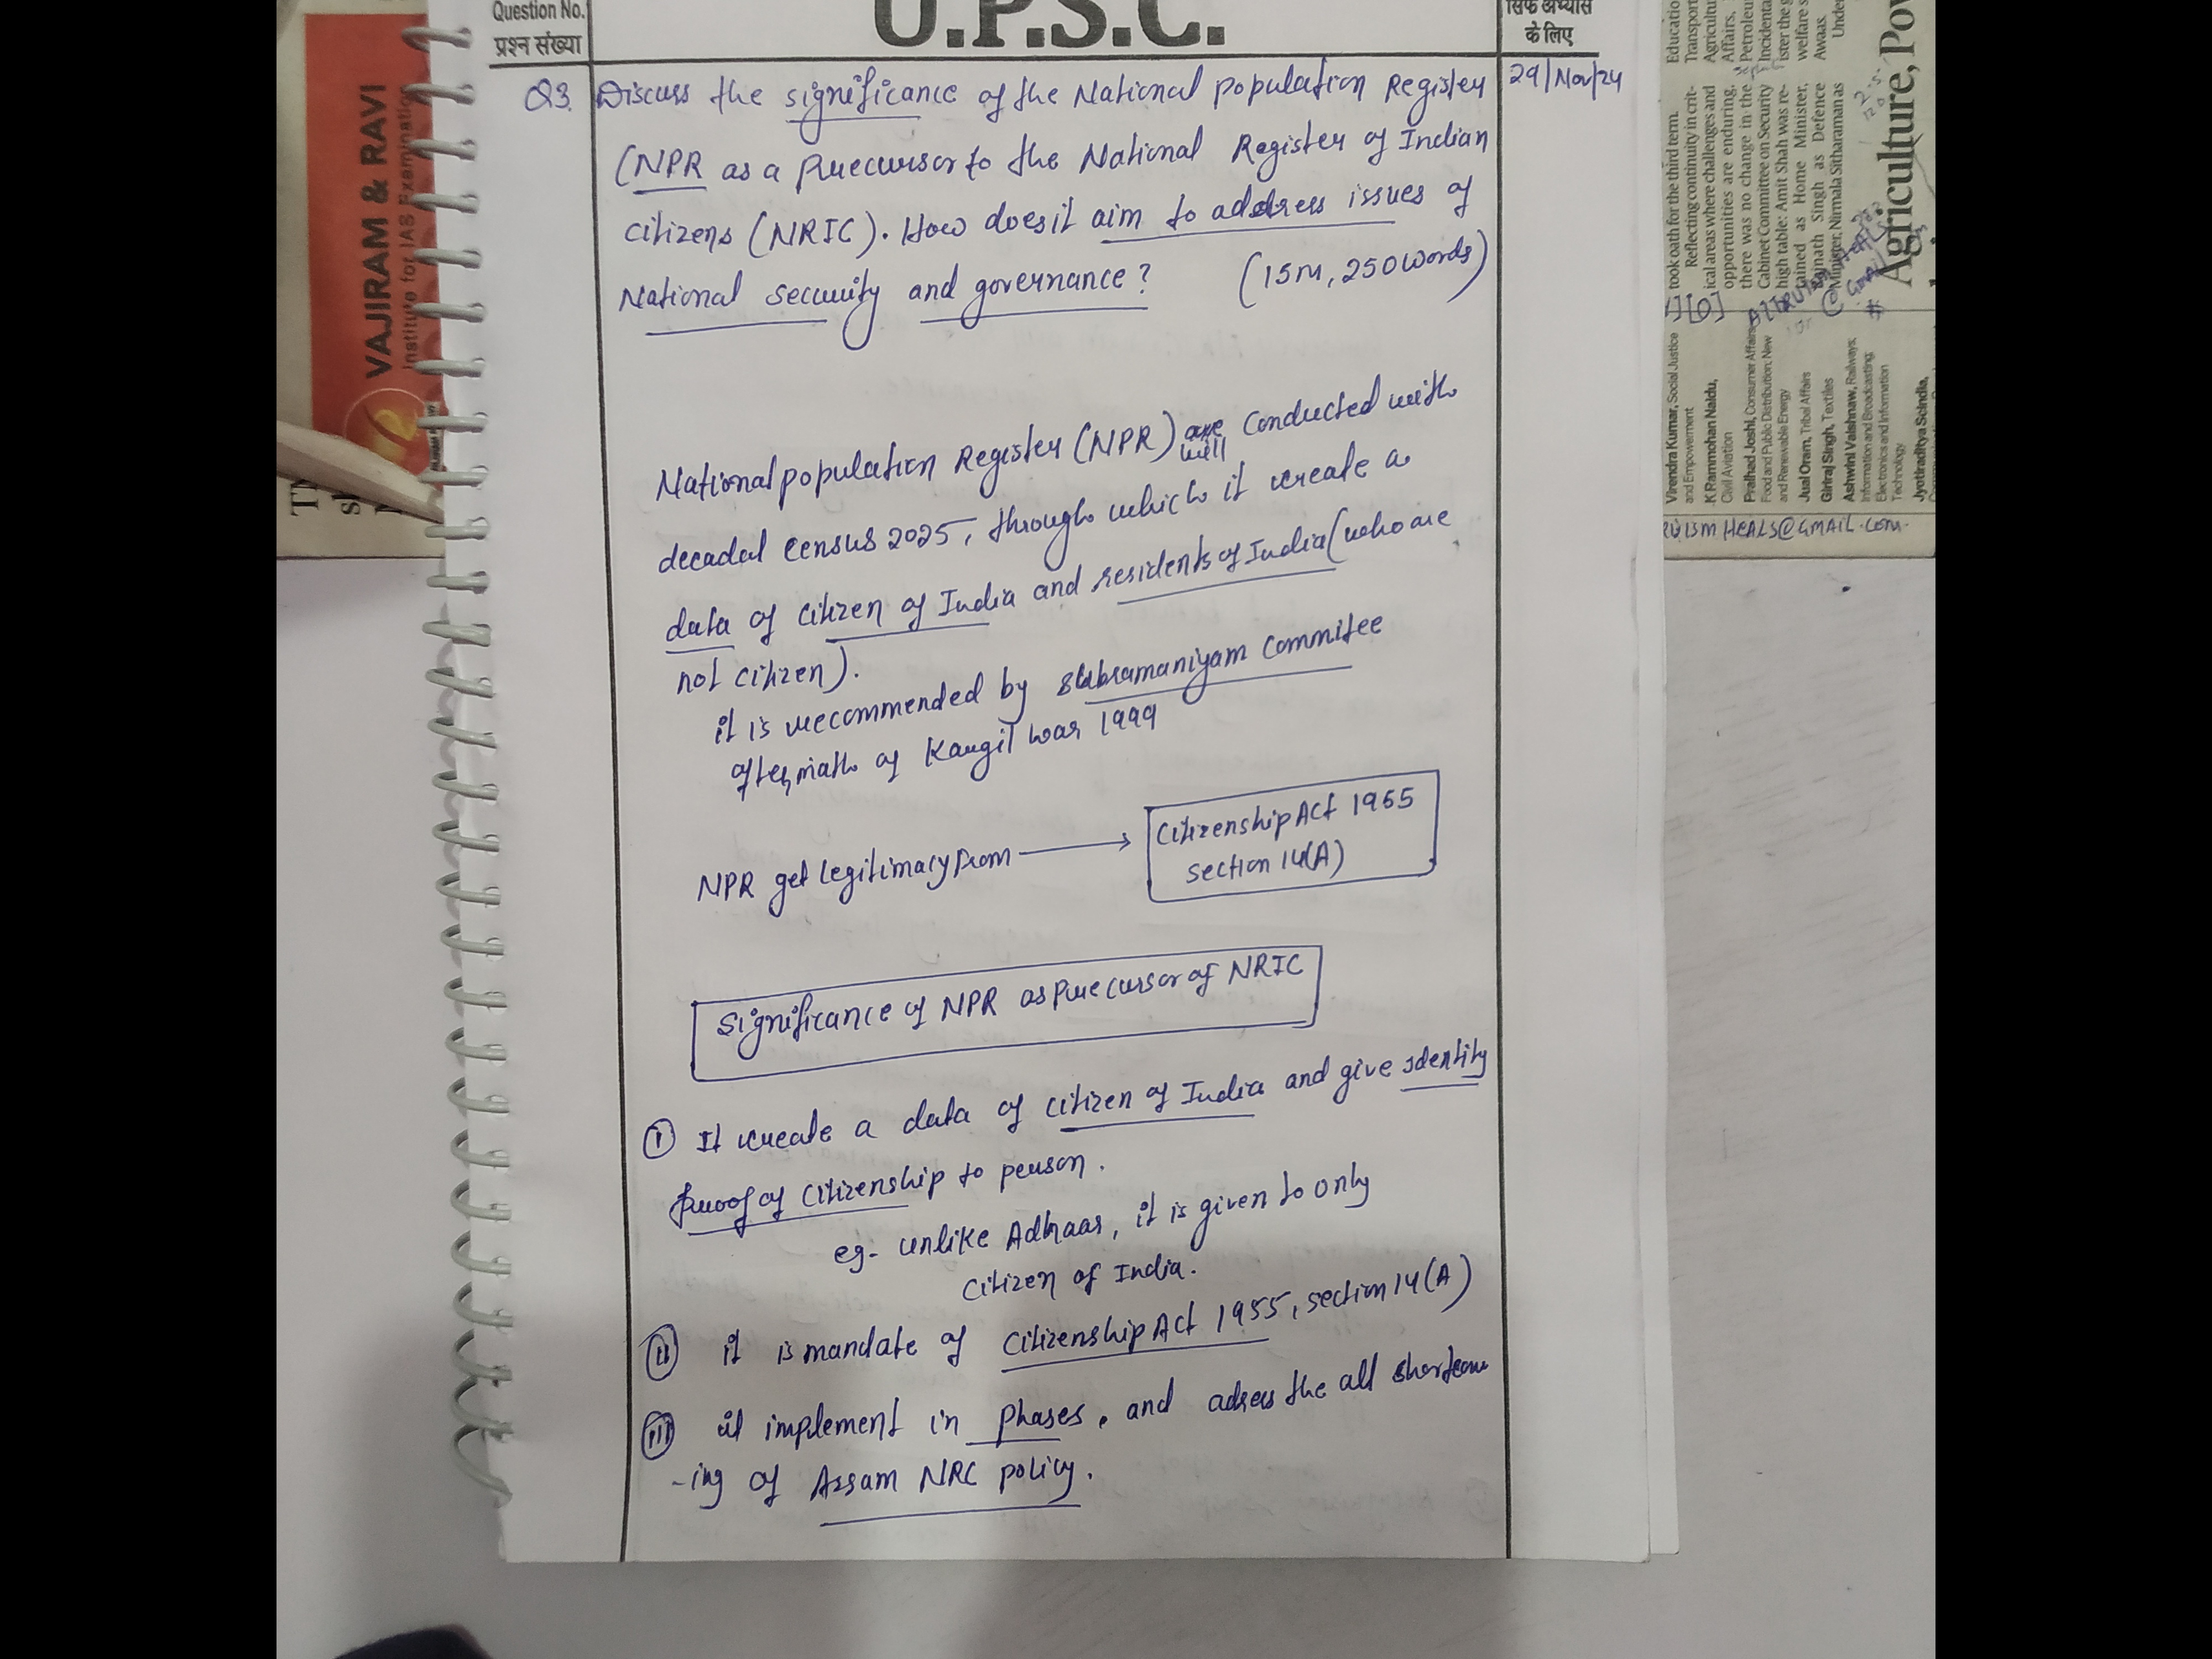 Question No.
प्रश्न संख्या
U.P.S.C.
सिर्फ अभ्यास
के लिए
29/Nov/24
Q3. Discuss the significance of the National population Register
(NPR as a precursor to the National Register of Indian
citizens (NRIC). How does it aim to address issues of
National security and governance? (15m, 250 words)
National population Register (NPR) will conducted with
decadal census 2025, through which it create a
data of citizen of India and residents of India (who are
not citizen).
it is recommended by Subramaniyam Commitee
aftermath of Kargil war 1999
NPR get legitimacy from → Citizenship Act 1955
section 14(A)
Significance of NPR as precursor of NRIC
(I) It create a data of citizen of India and give identity
proof of citizenship to person.
eg- unlike Adhaar, it is given to only
citizen of India.
(II) it is mandate of Citizenship Act 1955, section 14(A)
(III) it implement in phases, and adress the all shortcom
-ing of Assam NRC policy.
VAJIRAM & RAVI
Institute for IAS Examination
took oath for the third term.
Reflecting continuity in crit-
ical areas where challenges and
opportunities are enduring,
there was no change in the
Cabinet Committee on Security
high table: Amit Shah was re-
tained as Home Minister,
Rajnath Singh as Defence
Minister, Nirmala Sitharaman as
Agriculture, Pow
Virendra Kumar, Social Justice
and Empowerment
K Rammohan Naidu,
Civil Aviation
Pralhad Joshi, Consumer Affairs,
Food and Public Distribution; New
and Renewable Energy
Jual Oram, Tribal Affairs
Giriraj Singh, Textiles
Ashwini Vaishnaw, Railways;
Information and Broadcasting;
Electronics and Information
Technology
Jyotiraditya Scindia,
RUISM HEALS@GMAIL.COM.